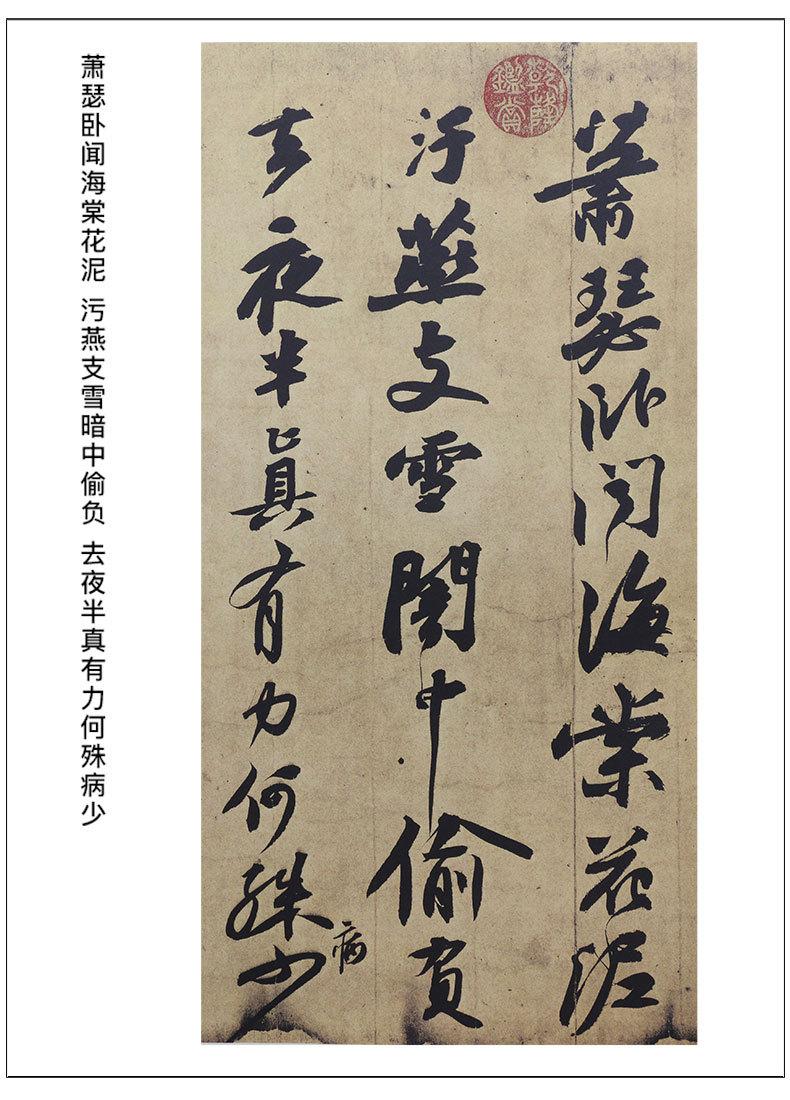 萧瑟卧闻海棠花泥 污燕支雪暗中偷负 去夜半真有力何殊病少
蕭瑟卧闻海棠花泥
汙燕支雪闇中偷負
去夜半真有力何殊少
病
乾隆
鑑賞